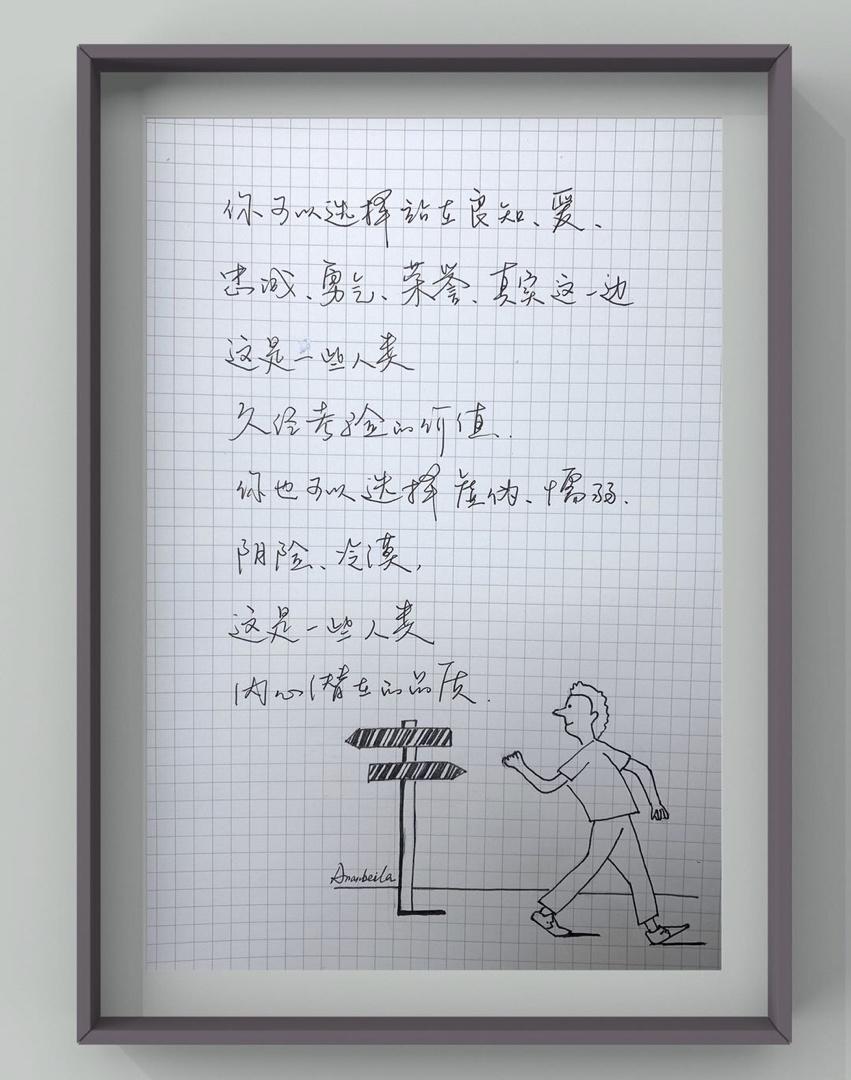 你可以选择站在良知、爱、
忠诚、勇气、荣誉、真实这一边
这是一些人类
久经考验的价值.
你也可以选择虚伪、懦弱、
阴险、冷漠,
这是一些人类
内心潜在的品质.
Ananbeila